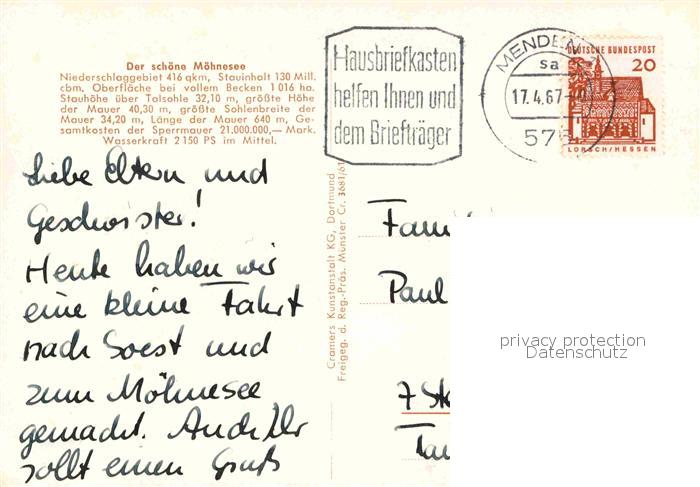 Der schöne Möhnesee
Niederschlaggebiet 416 qkm, Stauinhalt 130 Mill.
cbm. Oberfläche bei vollem Becken 1 016 ha.
Stauhöhe über Talsohle 32,10 m, größte Höhe
der Mauer 40,30 m, größte Sohlenbreite der
Mauer 34,20 m, Länge der Mauer 640 m, Ge-
samtkosten der Sperrmauer 21.000.000,— Mark.
Wasserkraft 2 150 PS im Mittel.
Liebe Eltern und
Geschwister!
Heute haben wir
eine kleine Fahrt
nach Soest und
zum Möhnesee
gemacht. Auch Ihr
sollt einen Gruß
Cramers Kunstanstalt KG, Dortmund
Freigeg. d. Reg.-Präs. Münster Cr. 3681/61
Hausbriefkasten
helfen Ihnen und
dem Briefträger
MENDEN
sa
17.4.67
576
DEUTSCHE BUNDESPOST
20
LORSCH/HESSEN
Fami
Paul
7 St
privacy protection
Datenschutz